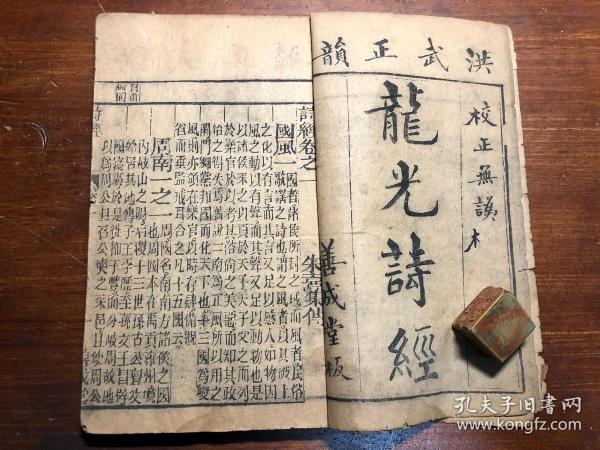 洪武正韻
校正無誤本
龍光詩經
善成堂板
詩經卷之一
朱熹集傳
國風一
國者諸侯所封之域而風者民俗
歌謠之詩也謂之風者以其被上
之化以有言而其言又足以感人如物因
風之動以有聲而其聲又足以動物也是
以諸侯采之以貢於天子天子受之而列
於樂官於以考其俗尚之美惡而知其政
治之得失焉舊說二南為正風所以用之
閨門鄉黨邦國而化天下也十三國為變
風則亦領在樂官以時存肄備觀
省而垂監戒耳合之凡十五國云
周南一之一
周國名南南方諸侯之國
也周國本在禹貢雍州境
內岐山之陽后稷十三世孫古公亶父
始居其地傳子王季歷至孫文王昌辟
國寖廣於是徙都于豐而分岐周故地
以為周公旦召公奭之采邑且使周公
詩經
孔夫子旧書网
www.kongfz.com